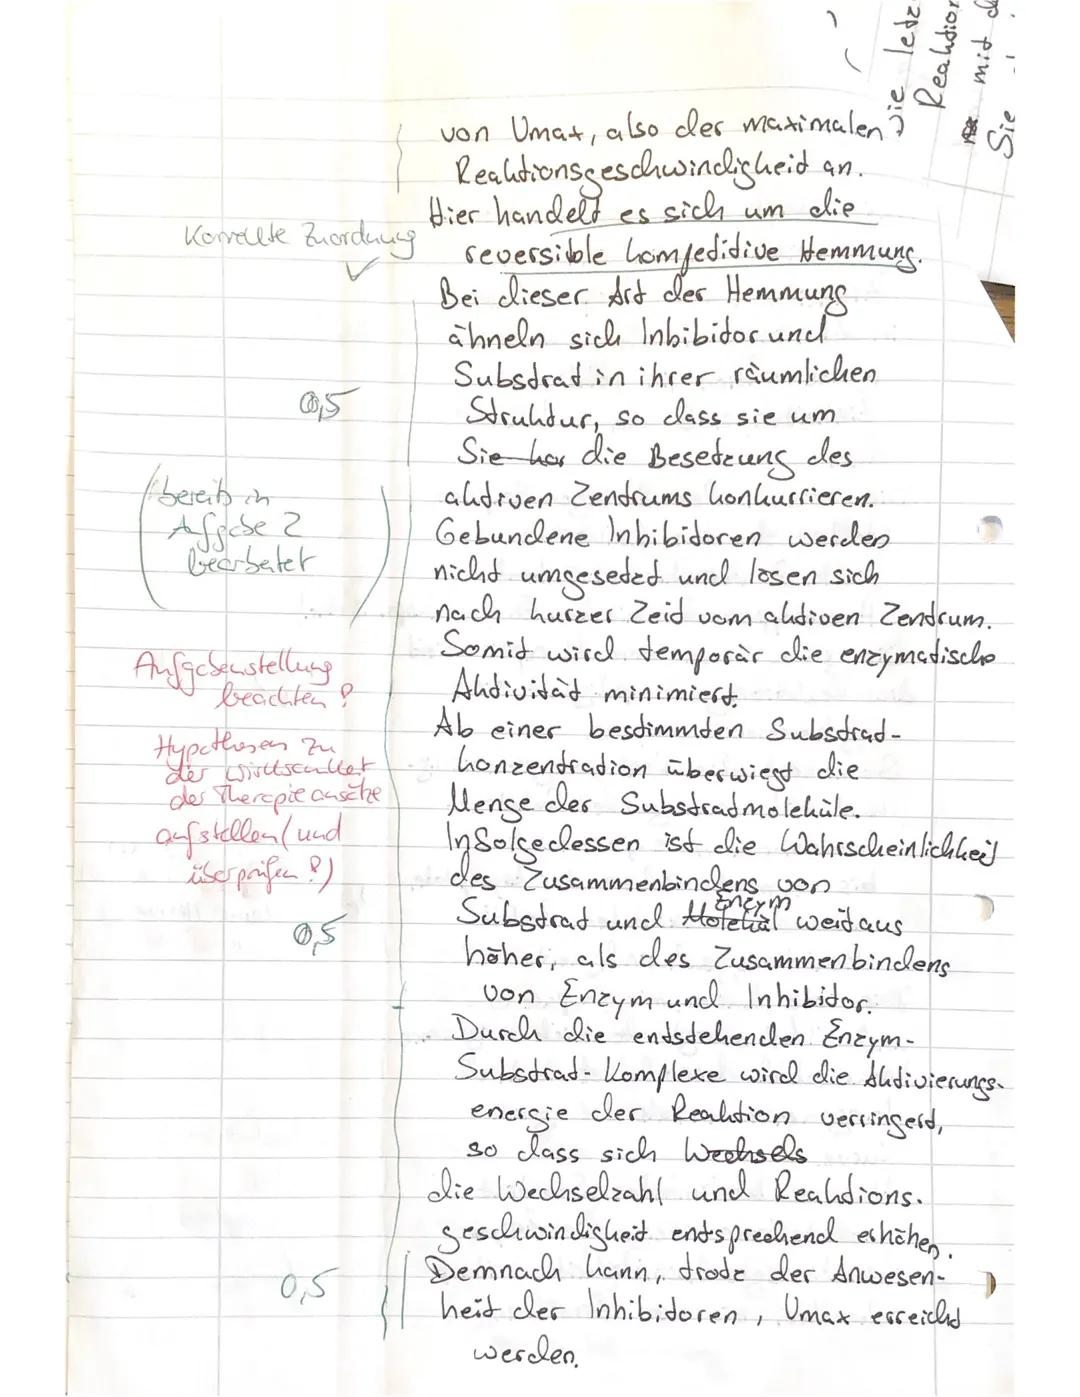 Die letz
Reaktion
mit d
Sie
von Vmax, also der maximalen
Reaktionsgeschwindigkeit an.
Hier handelt es sich um die
reversible kompeditive Hemmung.
Korrekte Zuordnung ✓
Bei dieser Art der Hemmung
ähneln sich Inhibitor und
Substrat in ihrer räumlichen
0,5
Struktur, so dass sie um
Sie die Besetzung des
aktiven Zentrums konkurrieren.
(bereits in
Aufgabe 2
bearbeitet)
Gebundene Inhibitoren werden
nicht umgesetzt und lösen sich
nach kurzer Zeit vom aktiven Zentrum.
Somit wird temporär die enzymatische
Aktivität minimiert.
Aufgabenstellung
beachten!
Ab einer bestimmten Substrat-
konzentration überwiegt die
Menge der Substratmoleküle.
Hypothesen zu
der Wirksamkeit
des Therapieansätze
aufstellen (und
überprüfen!)
Infolgedessen ist die Wahrscheinlichkeit
des Zusammenbindens von
Substrat und Enzym weitaus
0,5
höher, als des Zusammenbindens
von Enzym und Inhibitor.
Durch die entstehenden Enzym-
Substrat-Komplexe wird die Aktivierungs-
energie der Reaktion verringert,
so dass sich Wechsels
die Wechselzahl und Reaktions-
geschwindigkeit entsprechend erhöhen.
Demnach kann, trotz der Anwesen-
0,5
heit der Inhibitoren, Vmax erreicht
werden.